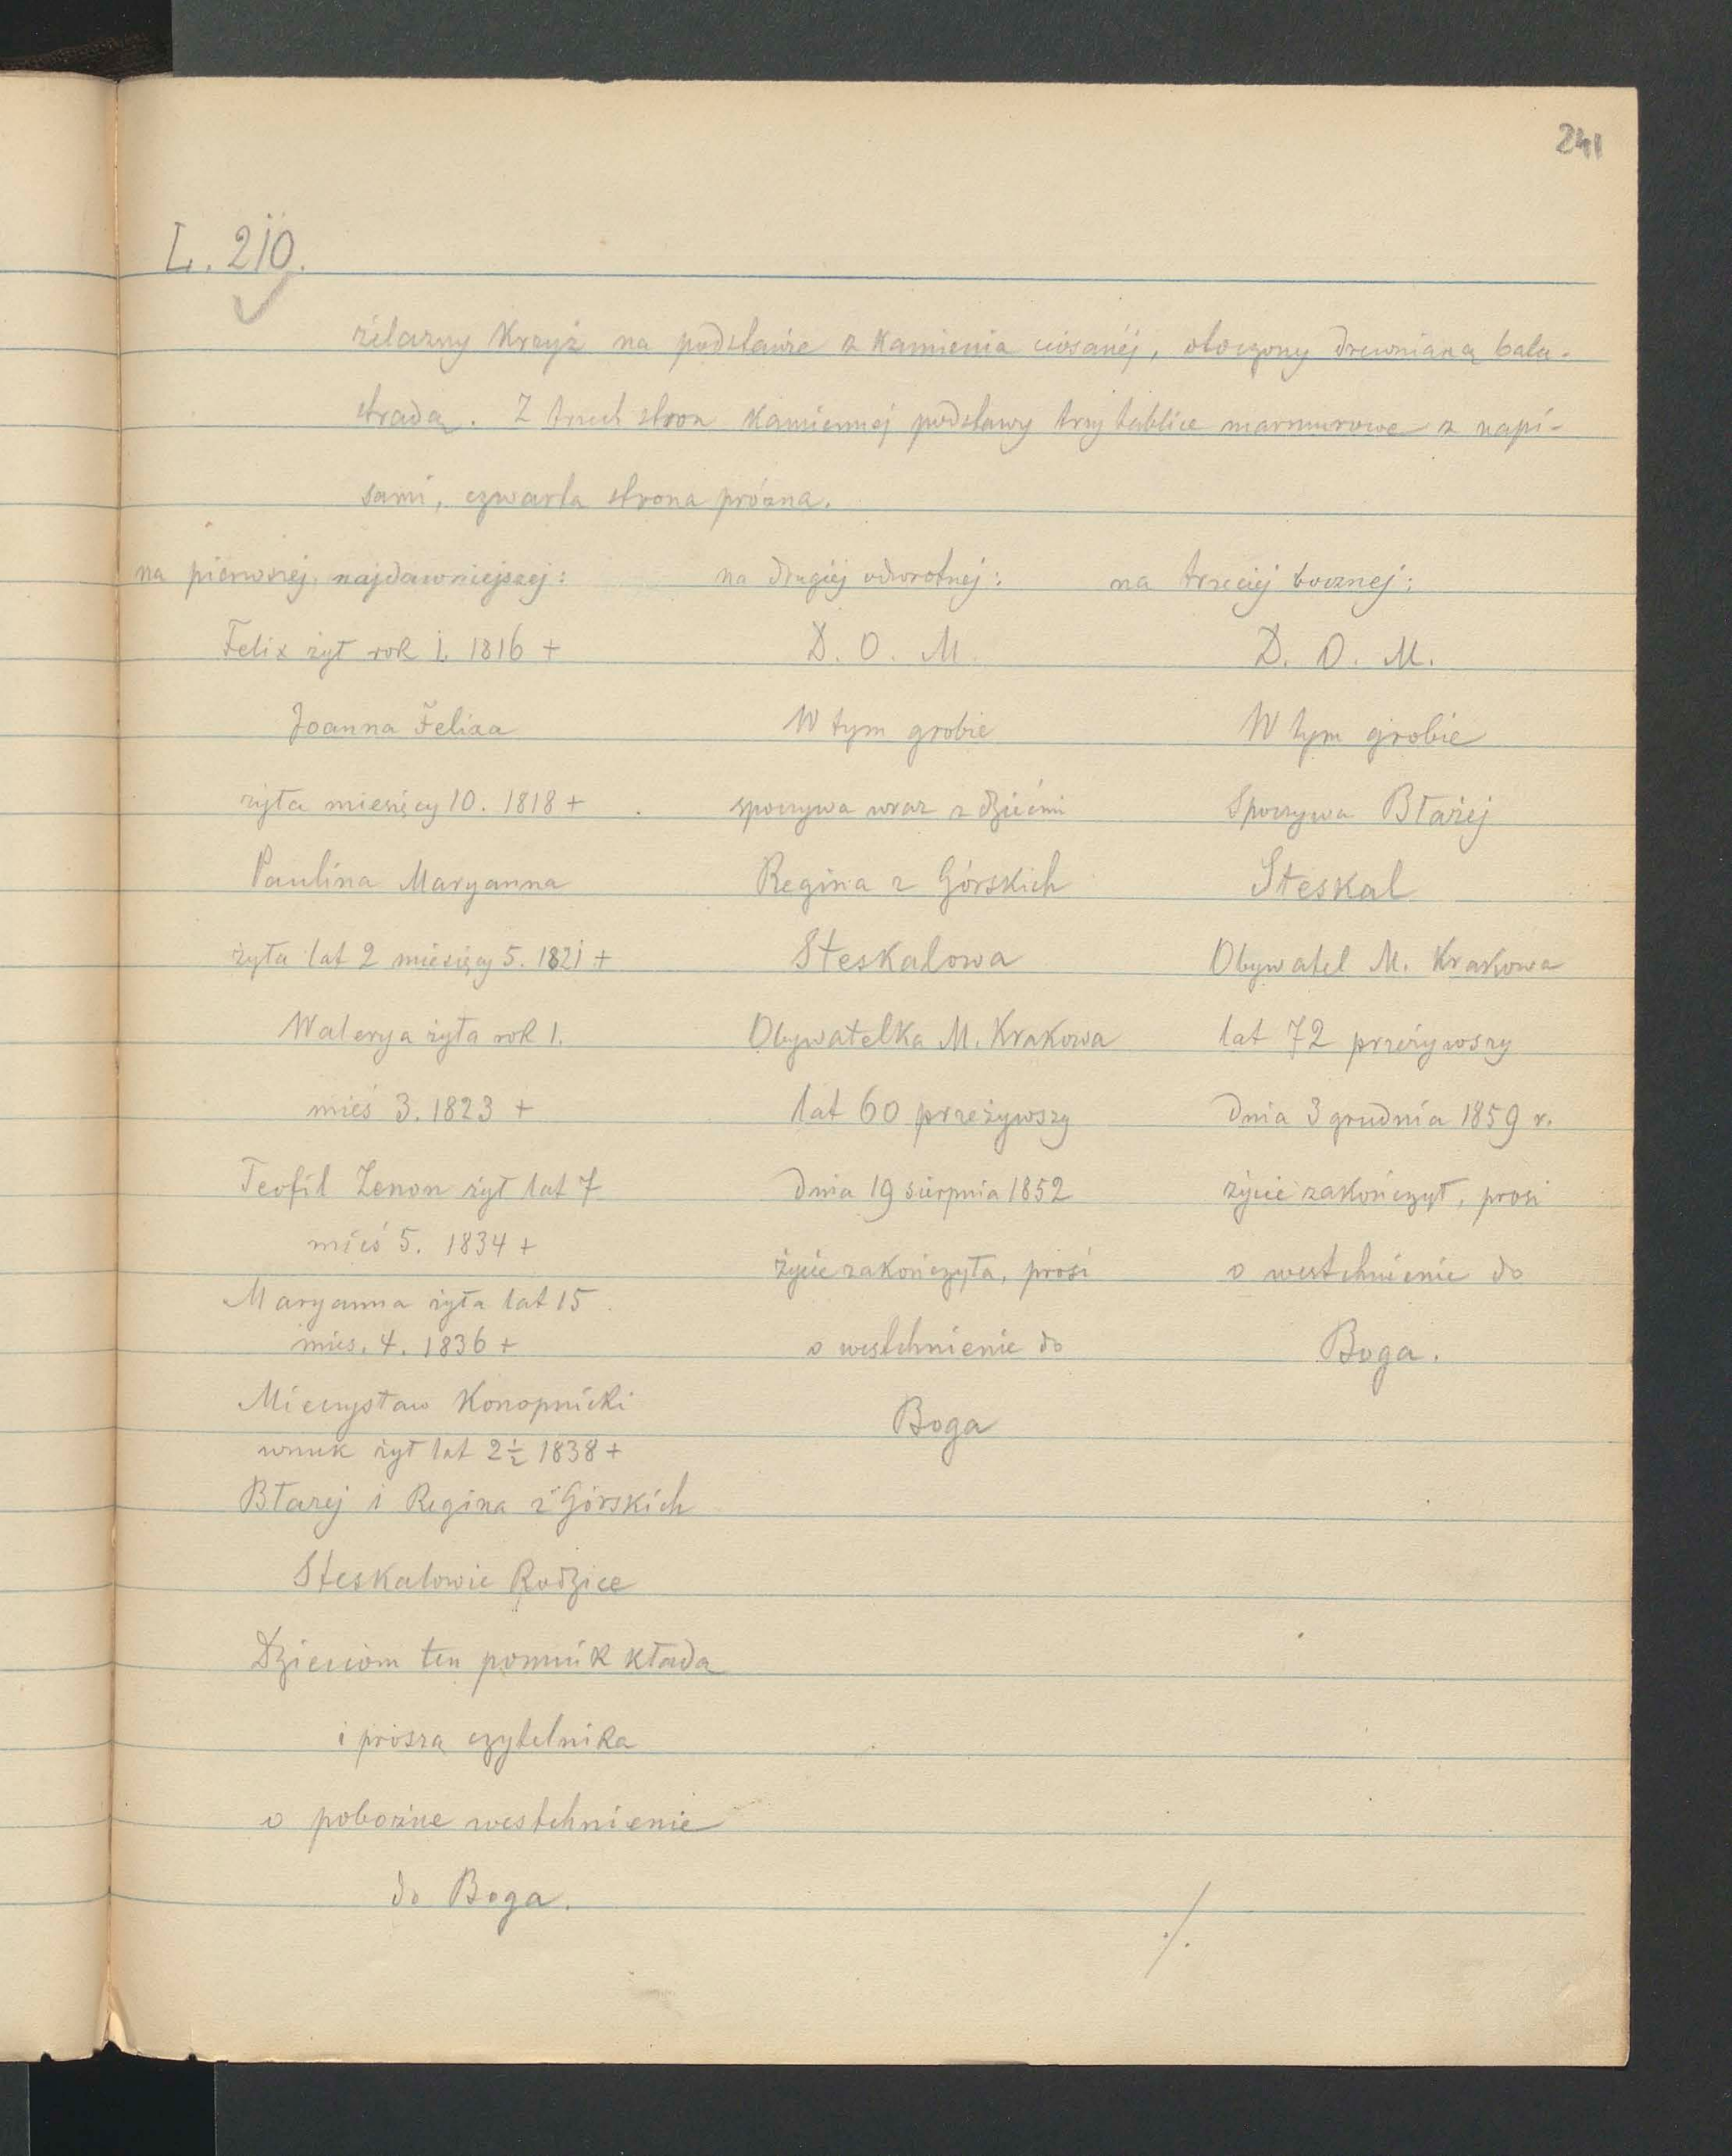 241
L. 210.
żelazny Krzyż na podstawie z Kamienia ciosanéj, otoczony drewnianą balu-
stradą. Z trzech stron Kamiennej podstawy trzy tablice marmurowe z napi-
sami, czwarta strona próżna.
na pierwszej, najdawniejszej:
Felix żył rok 1. 1816 +
Joanna Felixa
żyła miesięcy 10. 1818 +
Paulina Maryanna
żyła lat 2 miesięcy 5. 1821 +
Walerya żyła rok 1.
mieś 3. 1823 +
Teofil Zenon żył lat 7
mieś 5. 1834 +
Maryanna żyła lat 15
mies. 4. 1836 +
Mieczysław Konopnicki
wnuk żył lat 2½ 1838 +
Błażej i Regina z Górskich
Steskalowie Rodzice
Dzieciom ten pomnik kładą
i proszą czytelnika
o pobożne westchnienie
do Boga.
na drugiej odwrotnej:
D. O. M.
W tym grobie
spoczywa wraz z dziećmi
Regina z Górskich
Steskalowa
Obywatelka M. Krakowa
lat 60 przeżywszy
dnia 19 sierpnia 1852
życie zakończyła, prosi
o westchnienie do
Boga
na trzeciej bocznej:
D. O. M.
W tym grobie
Spoczywa Błażej
Steskal
Obywatel M. Krakowa
lat 72 przeżywszy
dnia 3 grudnia 1859 r.
życie zakończył, prosi
o westchnienie do
Boga.
./.